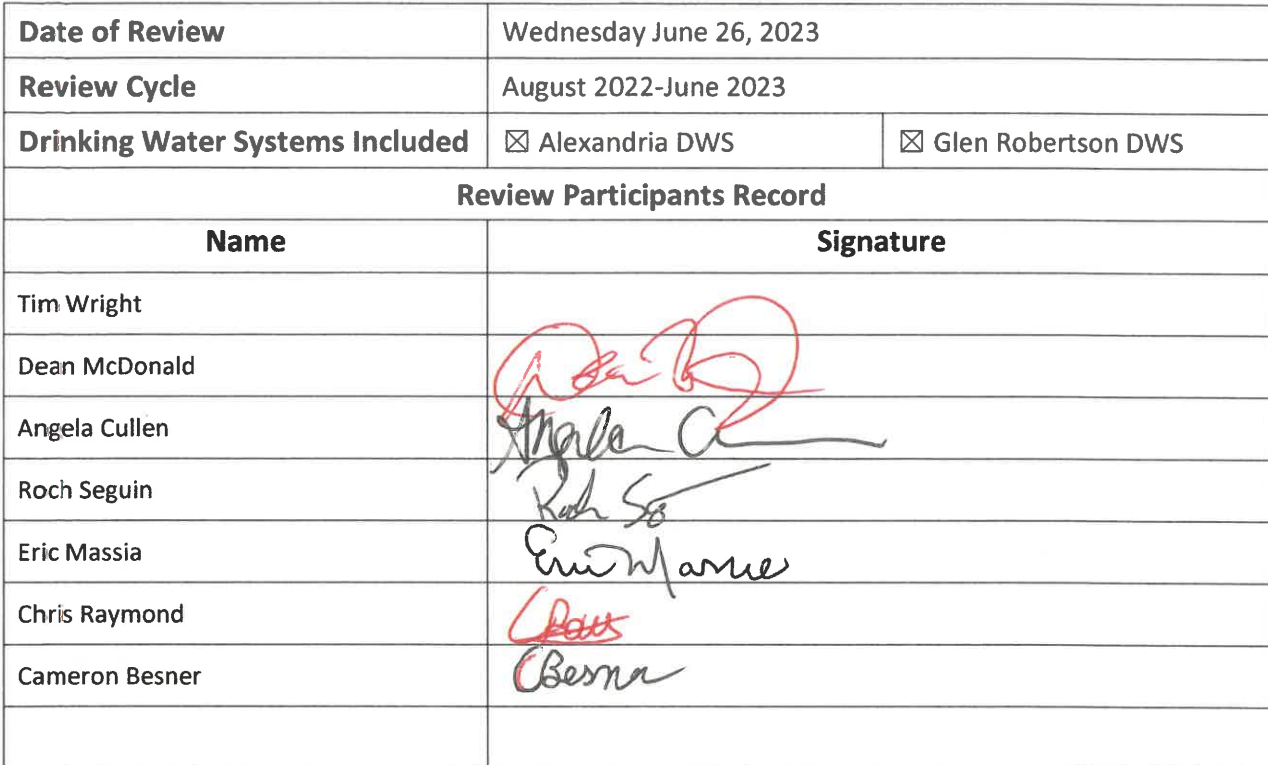 Date of Review Wednesday June 26, 2023
Review Cycle August 2022-June 2023
Drinking Water Systems Included ☒ Alexandria DWS ☒ Glen Robertson DWS
Review Participants Record
Name Signature
Tim Wright
Dean McDonald
Angela Cullen Angela C
Roch Seguin
Eric Massia Eric Massie
Chris Raymond
Cameron Besner CBesner